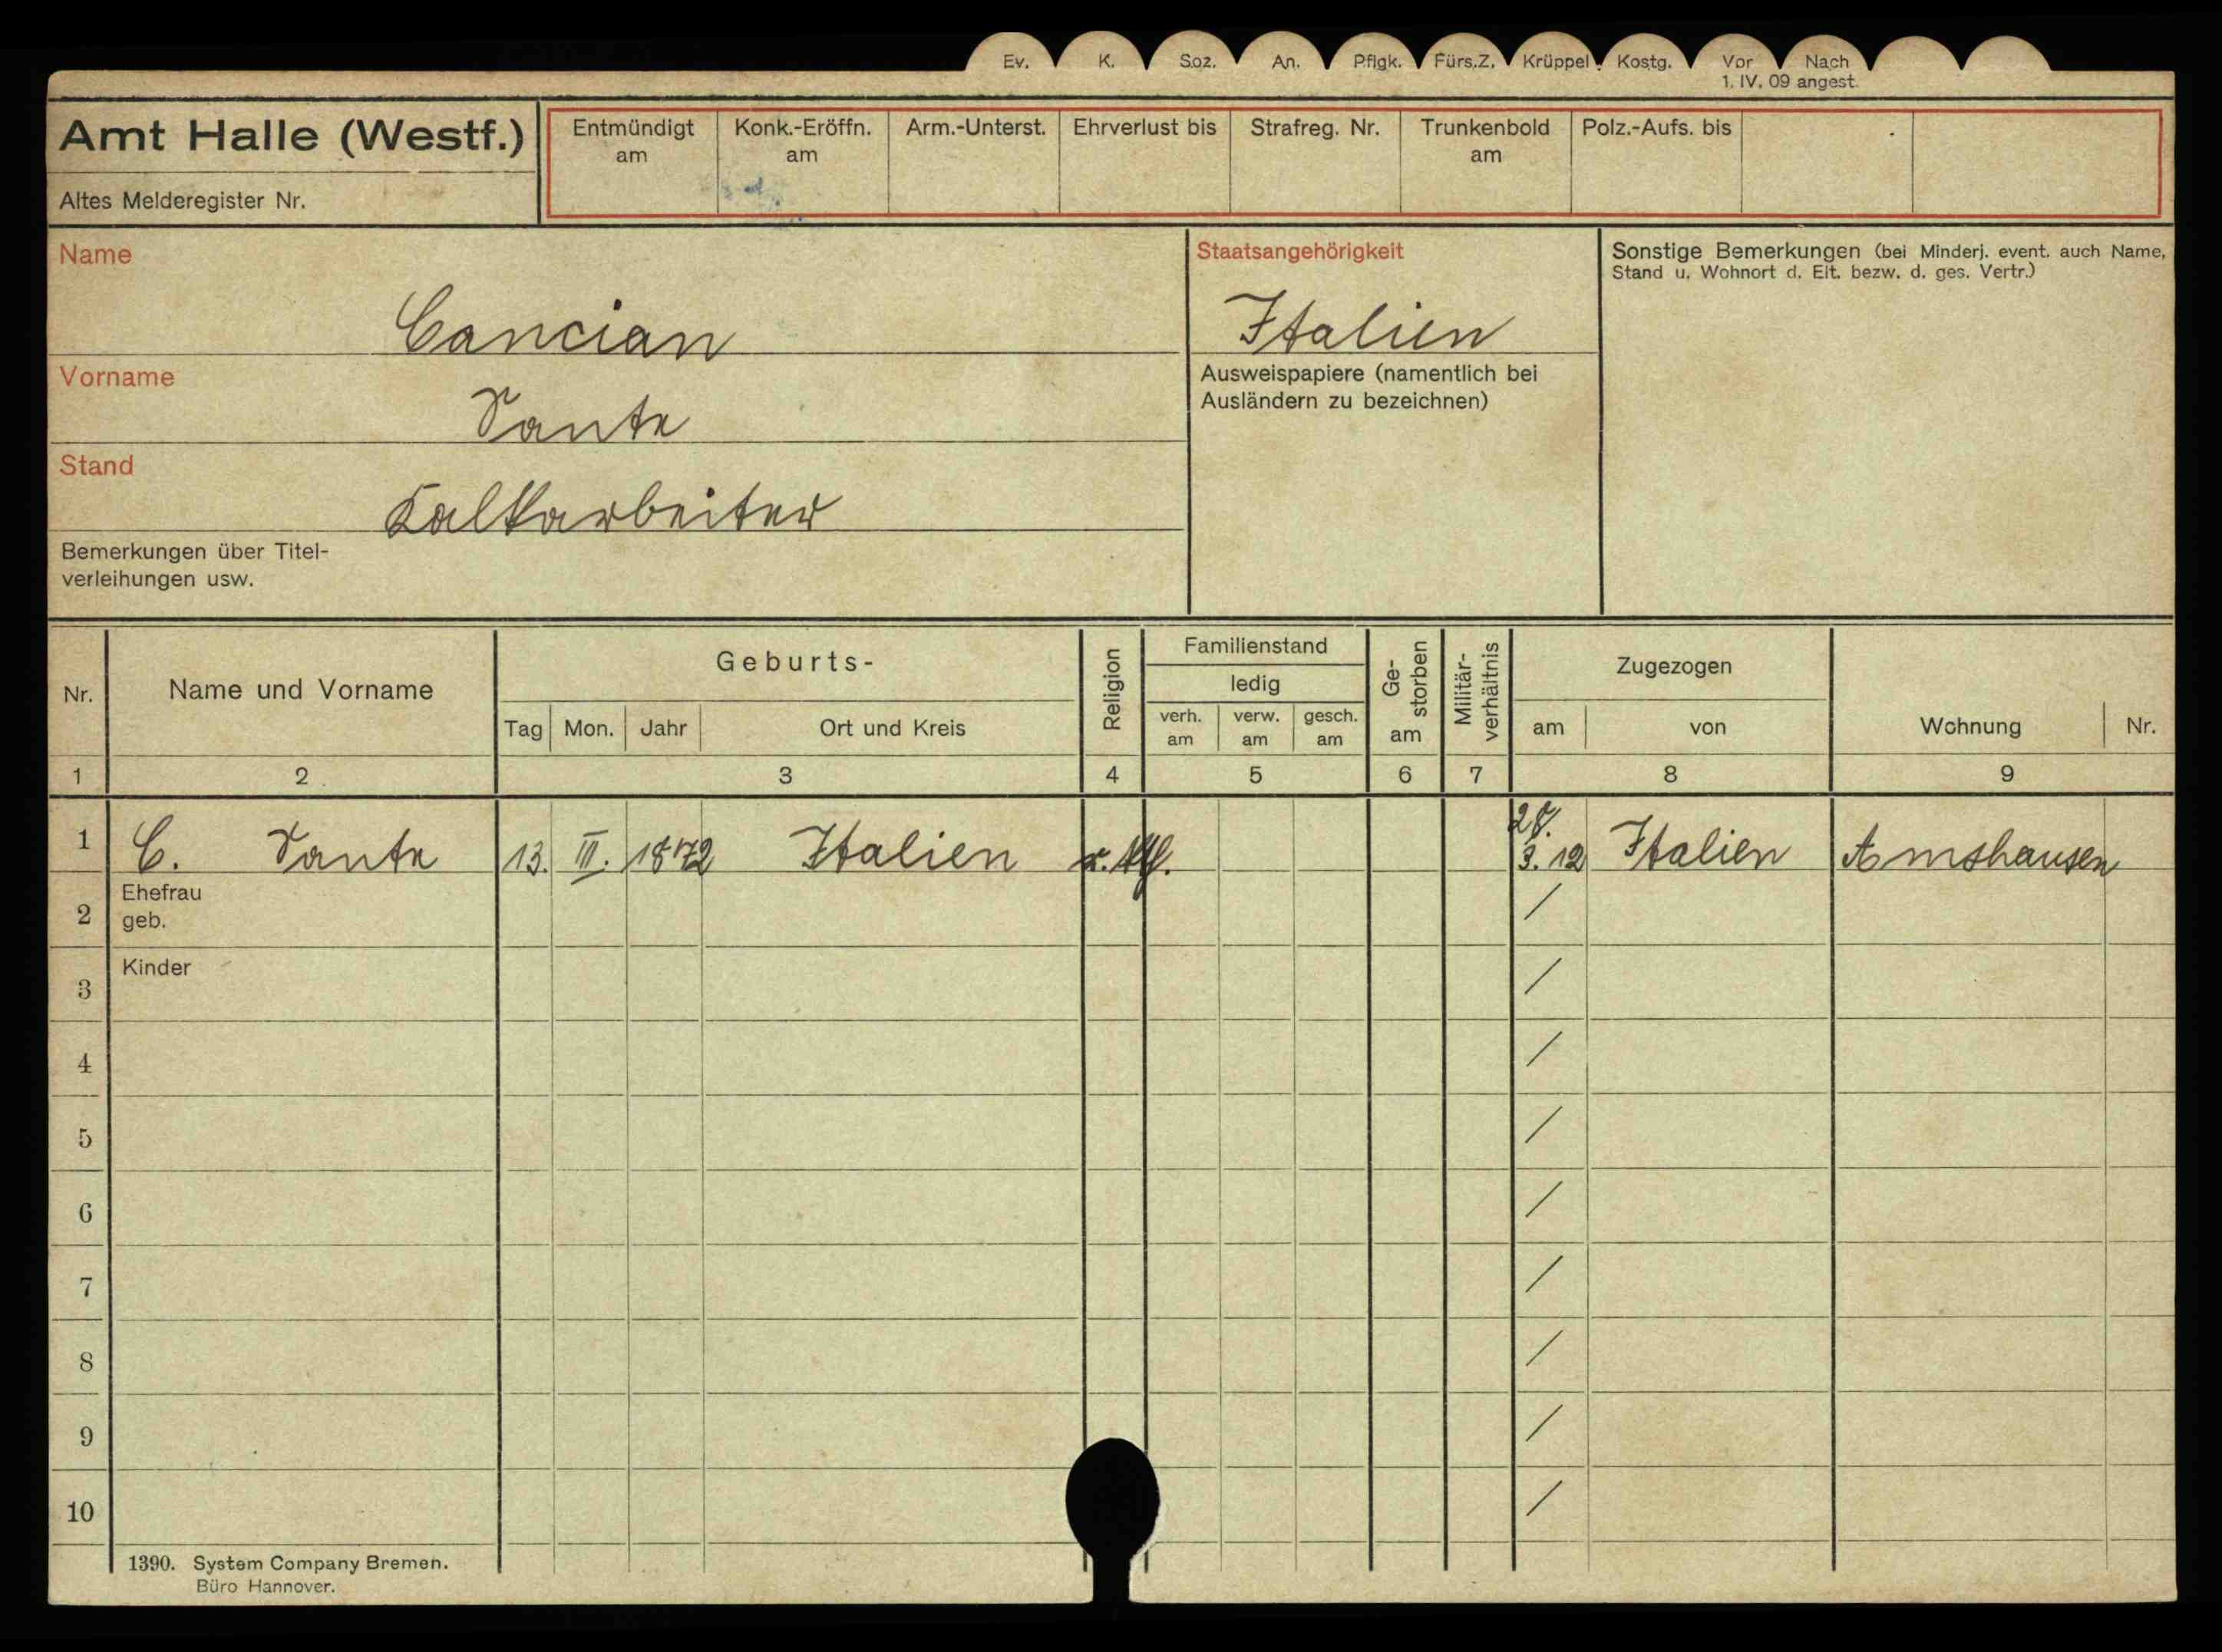 Ev. K. Soz. An. Pflgk. Fürs.Z. Krüppel. Kostg. Vor Nach
1. IV. 09 angest.
Amt Halle (Westf.)
Altes Melderegister Nr.
Entmündigt am
Konk.-Eröffn. am
Arm.-Unterst.
Ehrverlust bis
Strafreg. Nr.
Trunkenbold am
Polz.-Aufs. bis
Name
Cancian
Vorname
Sante
Stand
Kalkarbeiter
Bemerkungen über Titel-
verleihungen usw.
Staatsangehörigkeit
Italien
Ausweispapiere (namentlich bei
Ausländern zu bezeichnen)
Sonstige Bemerkungen (bei Minderj. event. auch Name,
Stand u. Wohnort d. Elt. bezw. d. ges. Vertr.)
Nr.
Name und Vorname
Geburts-
Tag Mon. Jahr Ort und Kreis
Religion
Familienstand
ledig
verh. am verw. am gesch. am
Ge-
storben
am
Militär-
verhältnis
Zugezogen
am von
Wohnung Nr.
1 2 3 4 5 6 7 8 9
1 C. Sante 13. III. 1872 Italien 28. 3. 12 Italien Amshausen
2 Ehefrau
geb.
3 Kinder
4
5
6
7
8
9
10
1390. System Company Bremen.
Büro Hannover.